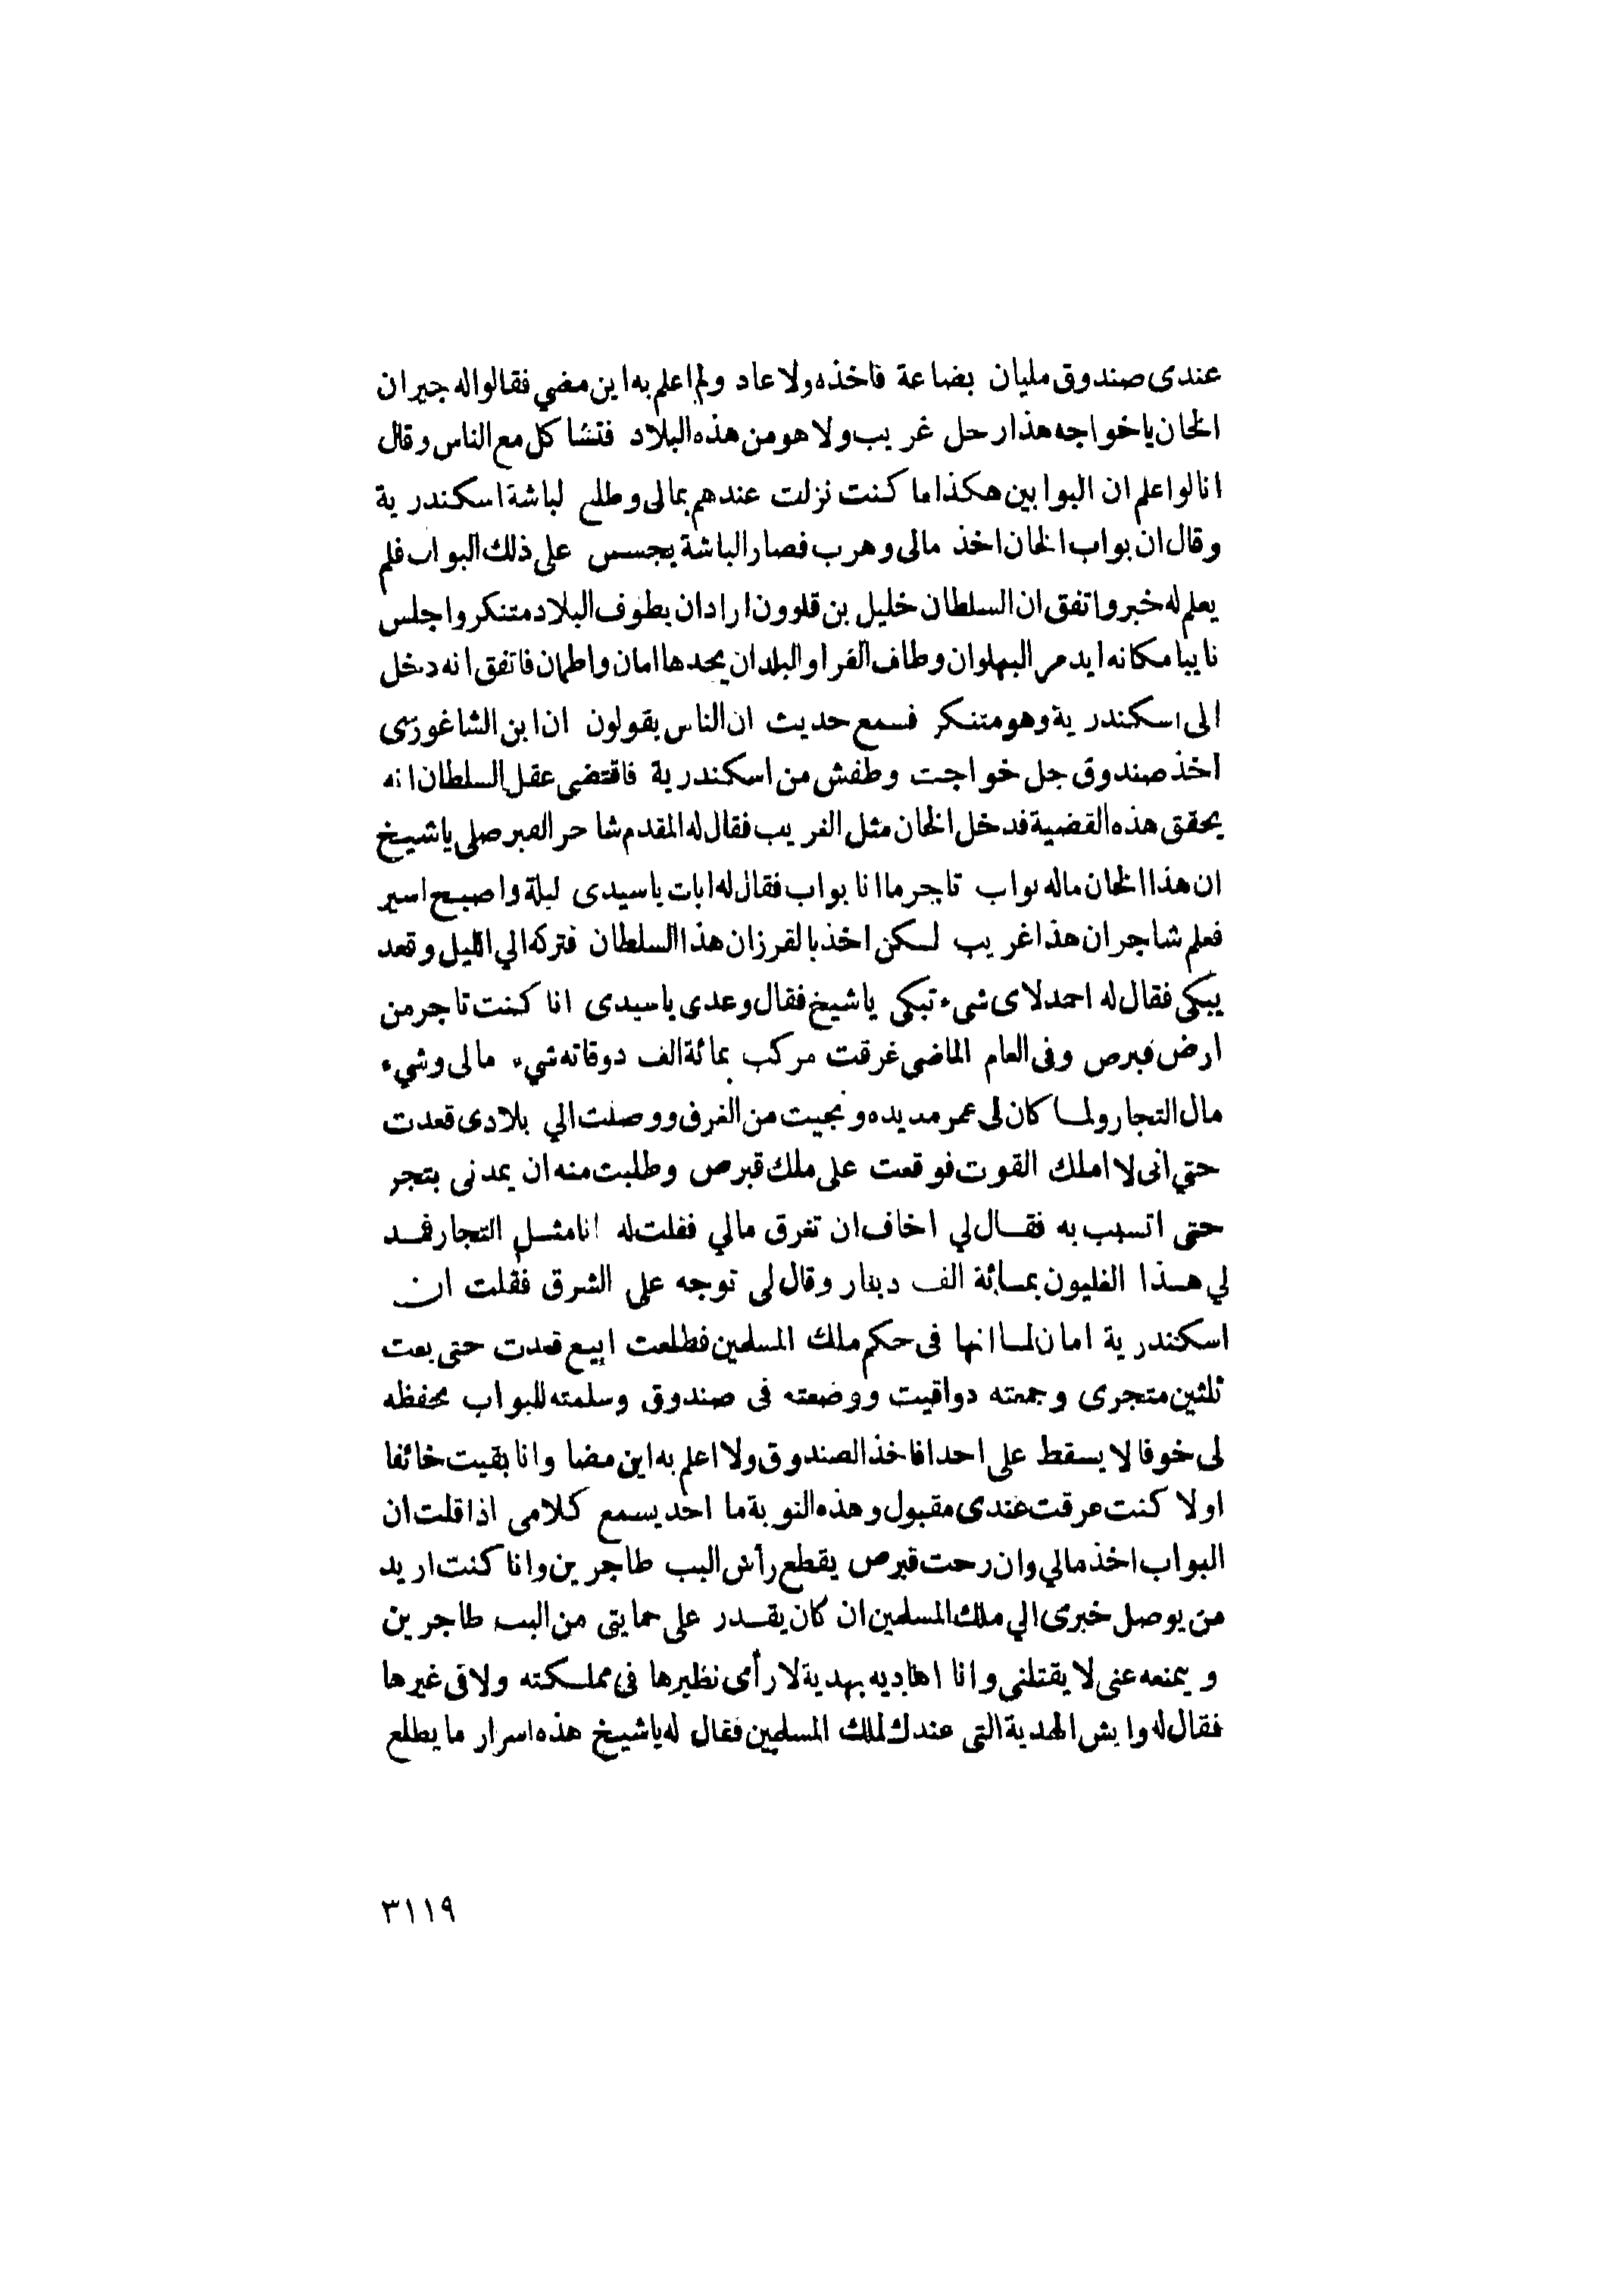 عندى صندوق مليان بضاعة فاخذه ولا عاد ولم اعلم به اين مضي فقالوا له جيران
الخان يا خواجه هذا رحل غريب ولا هو من هذه البلاد فتشا كل مع الناس وقال
انا لو اعلم ان البوابين هكذا ما كنت نزلت عندهم بمالى وطلع لباشة اسكندرية
وقال ان بواب الخان اخذ مالى وهرب فصار الباشة يجسس على ذلك البواب فلم
يعلم له خبر واتفق ان السلطان خليل بن قلوون اراد ان يطوف البلاد متنكر واجلس
نايبا مكانه ايدمر البهلوان وطاف القرا والبلدان يجدها امان واطمان فاتفق انه دخل
الى اسكندرية وهو متنكر فسمع حديث ان الناس يقولون ان ابن الشاغورى
اخذ صندوق جل خواجت وطفش من اسكندرية فاقتضى عقل السلطان انه
يحقق هذه القضية فدخل الخان مثل الغريب فقال له المقدم شاحر القبرصلى يا شيخ
ان هذا الخان ماله بواب تاجر ما انا بواب فقال له ابات يا سيدى ليلة واصبح اسير
فعلم شاجر ان هذا غريب لكن اخذ بالقرزان هذا السلطان فتركه الي الليل وقعد
يبكى فقال له احمد لاى شىء تبكى يا شيخ فقال وعدى يا سيدى انا كنت تاجر من
ارض قبرص وفى العام الماضى غرقت مركب بمائة الف دوقاته شيء مالى وشيء
مال التجار ولما كان لى عمر مديده ونجيت من الغرق ووصلت الي بلادى قعدت
حتي انى لا املك القوت فوقعت على ملك قبرص وطلبت منه ان يمدنى بتجر
حتى اتسبب به فقال لي اخاف ان تغرق مالي فقلت له انا مثل التجار فمد
لي هذا الغليون بمائة الف دينار وقال لى توجه على الشرق فقلت ان
اسكندرية امان لما انها فى حكم ملك المسلمين فطلعت ابيع قعدت حتى بعت
ثلثين متجرى وجمعته دواقيت ووضعته فى صندوق وسلمته للبواب يحفظه
لى خوفا لا يسقط على احد فاخذ الصندوق ولا اعلم به اين مضا وانا بقيت خائفا
اولا كنت عرقت عندى مقبول وهذه النوبة ما احد يسمع كلامى اذا قلت ان
البواب اخذ مالي وان رحت قبرص يقطع رأس البب طاجرين وانا كنت اريد
من يوصل خبرى الي ملك المسلمين ان كان يقدر على حمايتى من البب طاجرين
ويمنعه عنى لا يقتلني وانا اهاديه بهدية لا رأى نظيرها فى مملكته ولا فى غيرها
فقال له وايش الهدية التى عندك لملك المسلمين فقال له يا شيخ هذه اسرار ما يطلع
٣١١٩